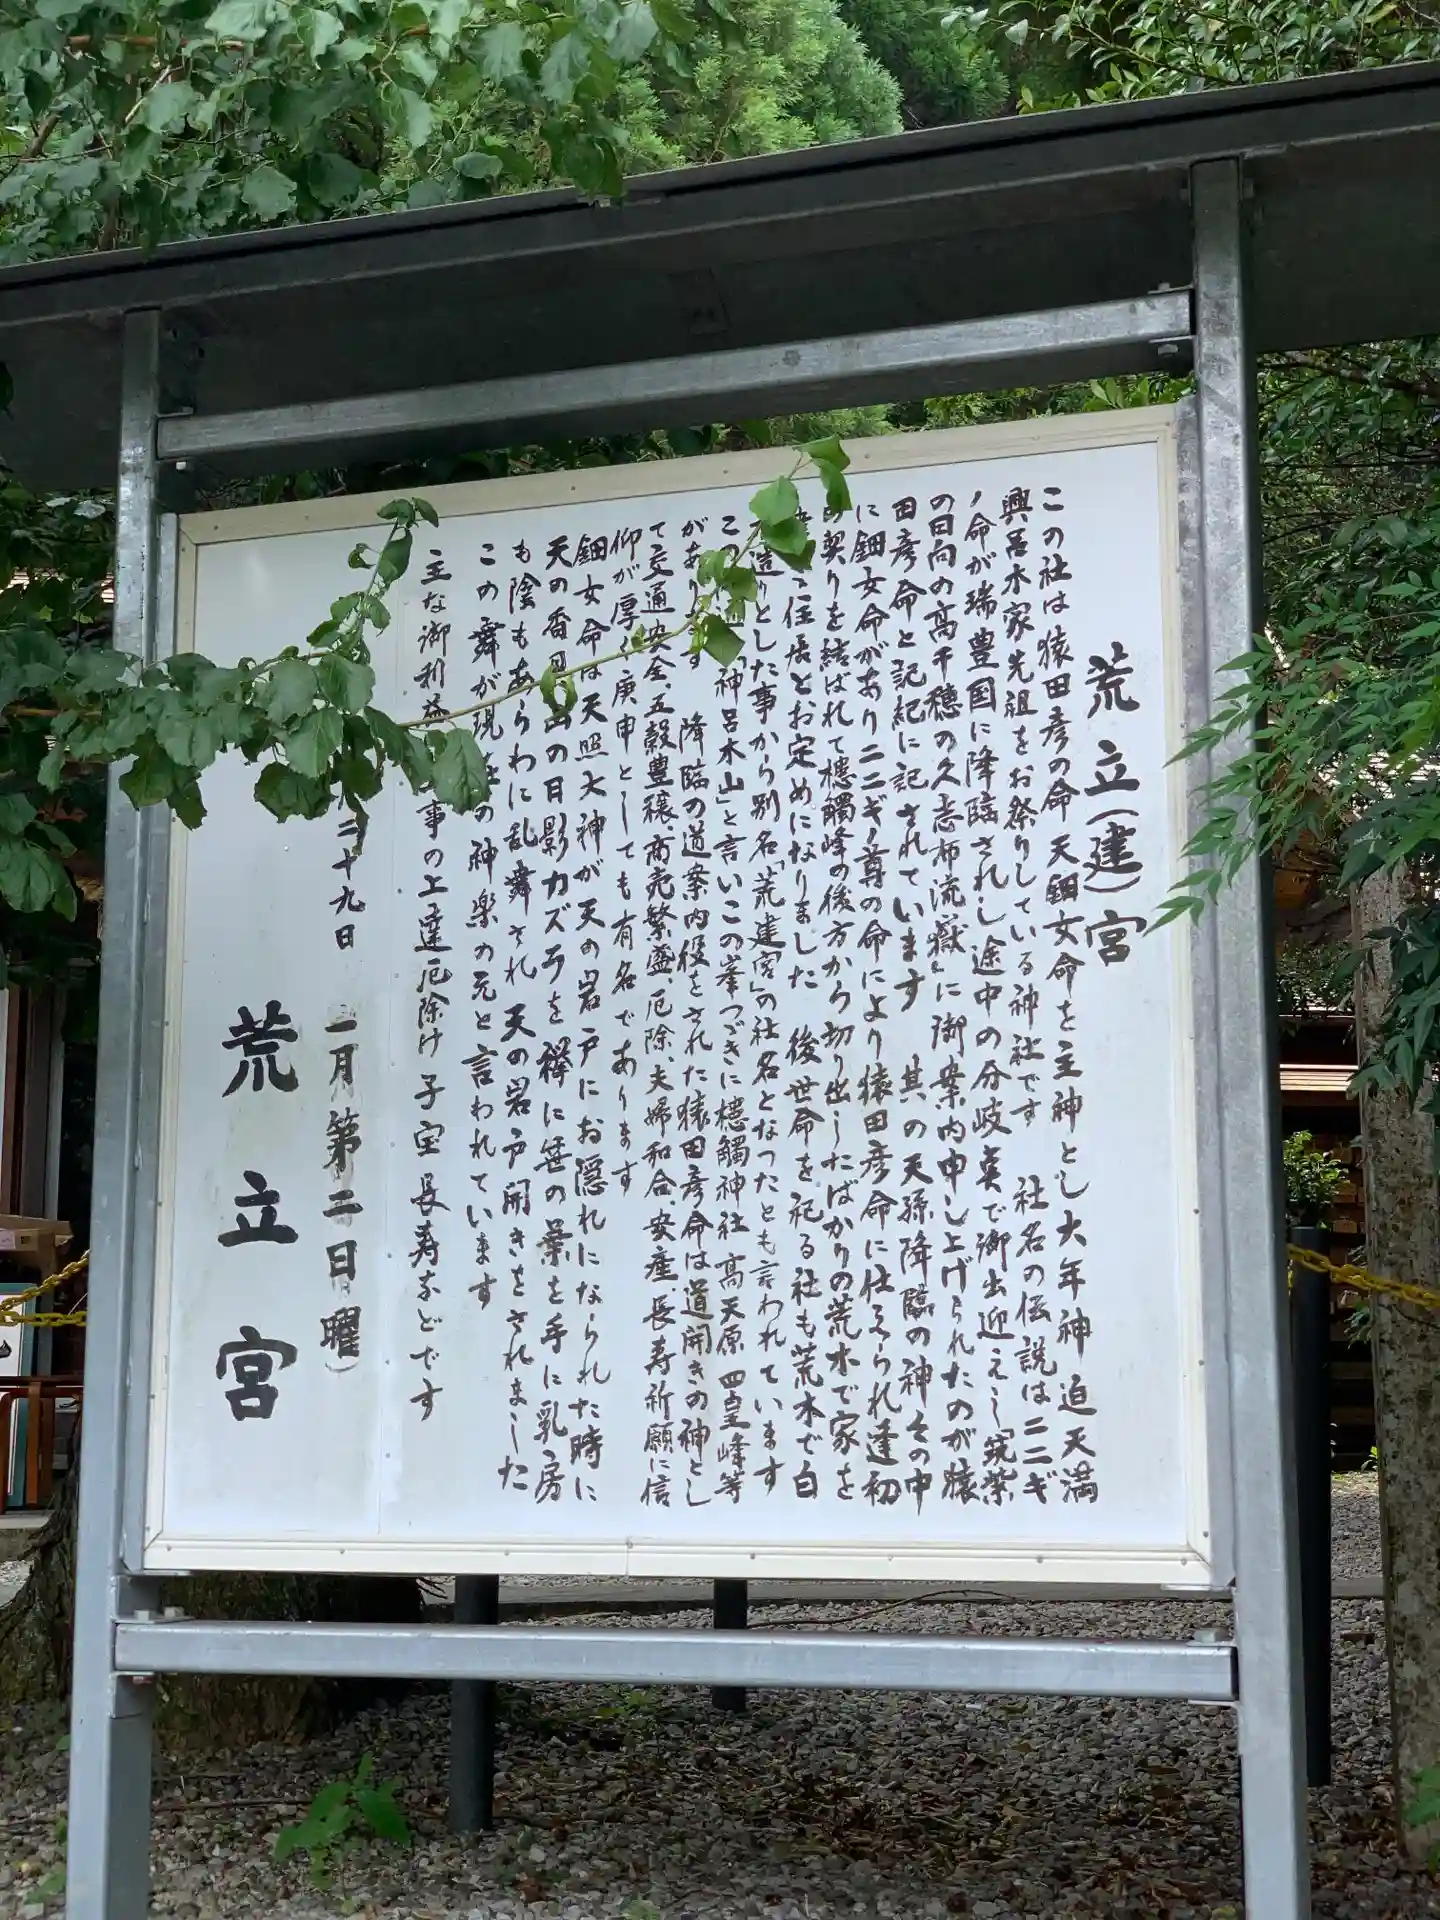 荒立(建)宮
この社は猿田彦の命 天鈿女命を主神とし大年神 迫天満
興呂木家先祖をお祭りしている神社です 社名の伝説はニニギ
ノ命が瑞豊国に降臨されし途中の分岐点で御出迎えし「筑紫
の日向の高千穂の久志布流嶽」に御案内申し上げられたのが猿
田彦命と記紀に記されています 其の天孫降臨の神々の中
に鈿女命がありニニギノ尊の命により猿田彦命に仕えられ逢初
契りを結ばれて槵觸峰の後方から切り出したばかりの荒木で家を
住居とお定めになりました 後世命を祀る社も荒木で白
造りとした事から別名「荒建宮」の社名となったとも言われています
この「神呂木山」と言いこの峯つづきに槵觸神社 高天原 四皇峰等
があります 降臨の道案内役をされた猿田彦命は道開きの神とし
て交通安全 五穀豊穣、商売繁盛、厄除、夫婦和合、安産、長寿祈願に信
仰が厚く庚申としても有名であります
鈿女命は天照大神が天の岩戸にお隠れになられた時に
天の香具山の日影カズラを襷に笹の葉を手に乳房
も陰もあらわに乱舞され 天の岩戸開きをされました
この舞が現在の神楽の元と言われています
主な御利益 事の上達 厄除け 子宝 長寿などです
二十九日 二月第二日曜)
荒立宮